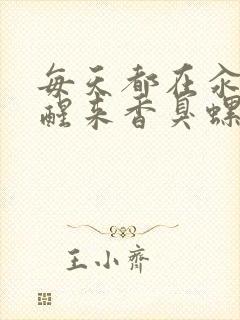 每天都在汆
醒来香臭螺
王小齋